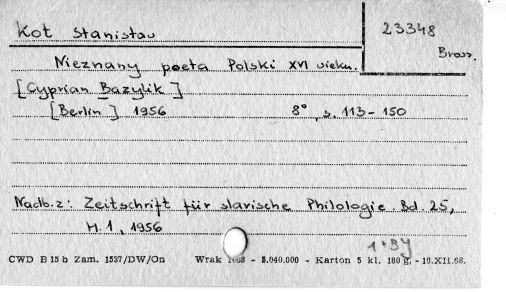 Kot Stanisław
23348
Brosz.
Nieznany poeta Polski XVI wieku.
[Cyprian Bazylik]
[Berlin] 1956 8°, s. 113-150
Nadb. z: Zeitschrift für slavische Philologie. Bd. 25,
H. 1, 1956
CWD B 15 b Zam. 1537/DW/On Wrak - 3.040.000 - Karton 5 kl. 180 g. - 10.XII.68.